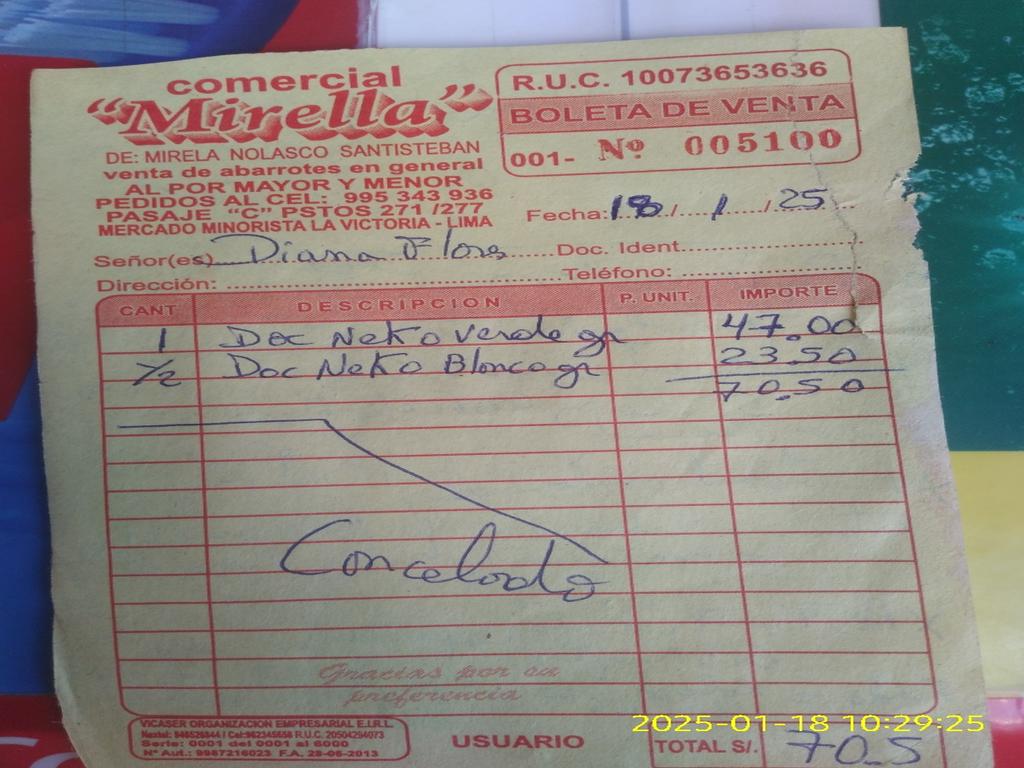 comercial
"Mirella"
DE: MIRELA NOLASCO SANTISTEBAN
venta de abarrotes en general
AL POR MAYOR Y MENOR
PEDIDOS AL CEL: 995 343 936
PASAJE "C" PSTOS 271 /277
MERCADO MINORISTA LA VICTORIA - LIMA
R.U.C. 10073653636
BOLETA DE VENTA
001- Nº 005100
Fecha: 18 / 1 / 25
Señor(es) Diana Flores Doc. Ident.
Dirección: Teléfono:
CANT DESCRIPCION P. UNIT. IMPORTE
1 Doc Neko verde gr 47.00
1/2 Doc Neko Blanco gr 23.50
70.50
Cancelado
Gracias por su
preferencia
VICASER ORGANIZACION EMPRESARIAL E.I.R.L.
Nextel: 946526844 / Cel:982345658 R.U.C. 20504294073
Serie: 0001 del 0001 al 6000
Nº Aut.: 9987216023 F.A. 28-06-2013
USUARIO
TOTAL S/. 70.5
2025-01-18 10:29:25